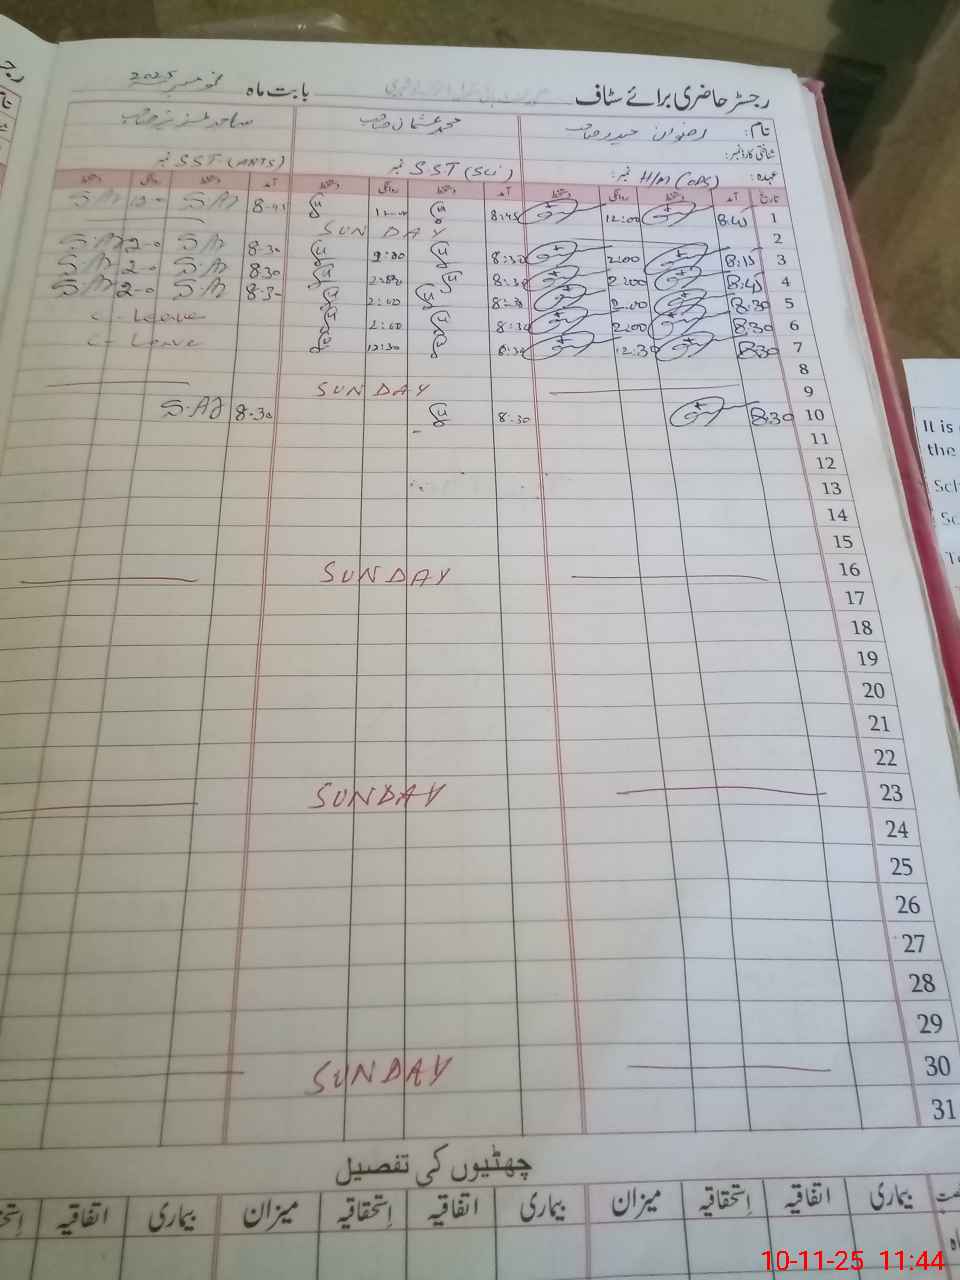 رجسٹر حاضری برائے سٹاف بابت ماہ نومبر 2025
نام: رضوان حیدر صاحب محمد عثمان صاحب
شناختی کارڈ نمبر:
عہدہ: H/M (OPS) نمبر: SST (Sci) نمبر SST (ANTS) نمبر
تاریخ آمد دستخط روانگی دستخط آمد دستخط روانگی دستخط آمد دستخط روانگی دستخط
1 8:45 12:00 8:45 12:00 8-45 S.AJ
2 SUNDAY
3 8:15 2:00 8:30 8-30 S.AJ 2-0 S.AJ
4 8:45 2:00 8:30 8:30 S.AJ 2-0 S.AJ
5 8:30 2:00 8:30 2:00 8-30 S.AJ 2-0 S.AJ
6 8:30 2:00 8:30 2:00 C-Leave
7 8:30 12:30 8:30 12:30 C-Leave
8
9 SUNDAY
10 8:30 8:30 8-30 S.AJ
11
12
13
14
15
16 SUNDAY
17
18
19
20
21
22
23 SUNDAY
24
25
26
27
28
29
30 SUNDAY
31
چھٹیوں کی تفصیل
بیماری اتفاقیہ اِستحقاقیہ میزان بیماری اتفاقیہ اِستحقاقیہ میزان بیماری اتفاقیہ
It is
the
Sch
Sc
10-11-25 11:44